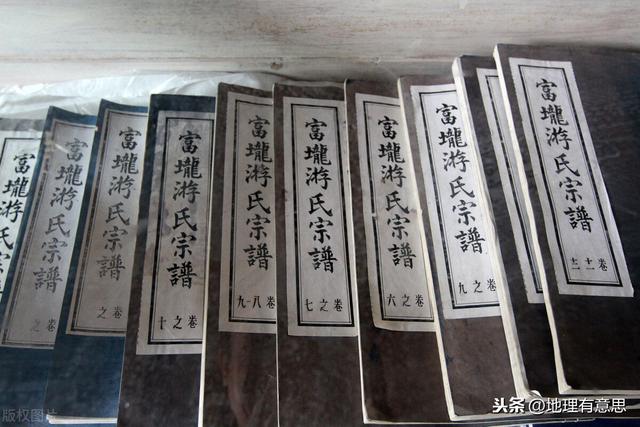 富壠游氏
富壠游氏宗譜
卷之
富壠游氏宗譜
卷之
富壠游氏宗譜
卷之十
富壠游氏宗譜
卷八-九
富壠游氏宗譜
卷之七
富壠游氏宗譜
卷之六
富壠游氏宗譜
卷之九
富壠游氏宗譜
卷十一十二
版权图片
头条 @地理有意思